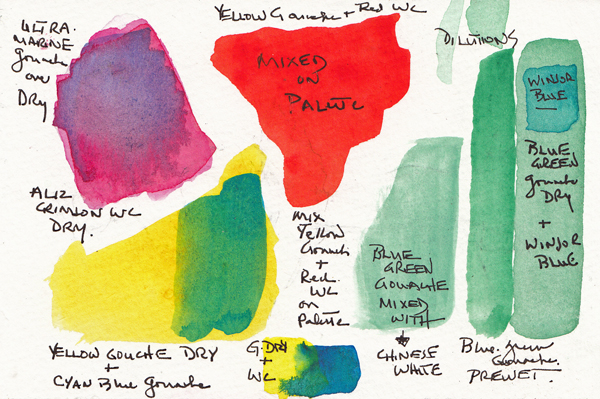 ULTRA.
MARINE
Gouache
over
DRY
ALIZ
CRIMSON WC
DRY.
YELLOW Gouache + Red WC
MIXED
ON
PALETTE
DILUTIONS
WINSOR
BLUE
BLUE
GREEN
Gouache
DRY
+
WINSOR
BLUE
MIX
Yellow
Gouach
+
Red.
WC
on
Palette
BLUE
GREEN
GOUACHE
MIXED
WITH
CHINESE
WHITE
YELLOW GOUCHE DRY
+
CYAN Blue Gouache
G.DRY
+
WC
Blue. Green
Gouache.
PREWET.